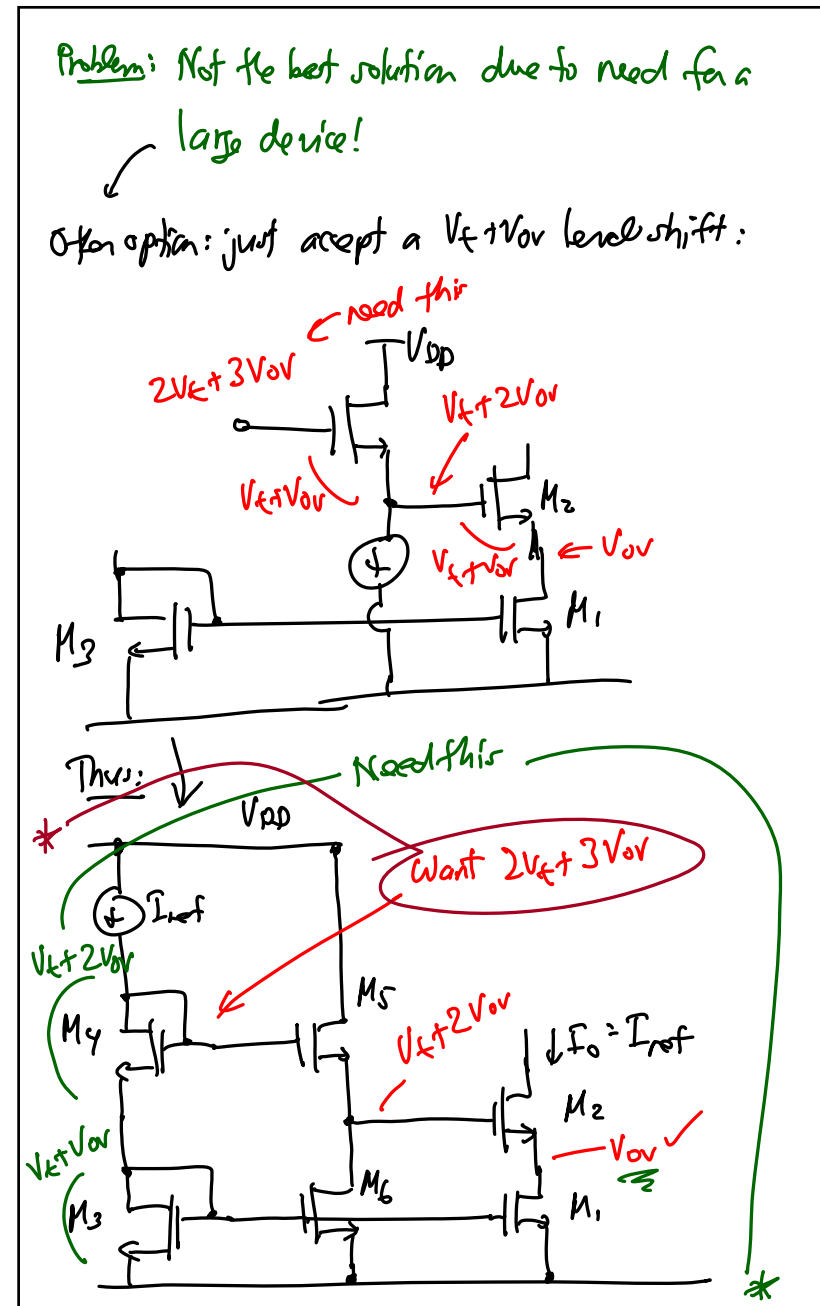 Problem: Not the best solution due to need for a
large device!
Other option: just accept a Vt+Vov level shift:
need this
VDD
2Vt+3Vov
Vt+2Vov
M2
Vt+Vov
Vt+Vov
Vov
M3
M1
Thus:
Need this
VDD
Want 2Vt+3Vov
Iref
Vt+2Vov
M4
M5
Vt+2Vov
Io = Iref
M2
Vov ✓
Vt+Vov
M3
M6
M1